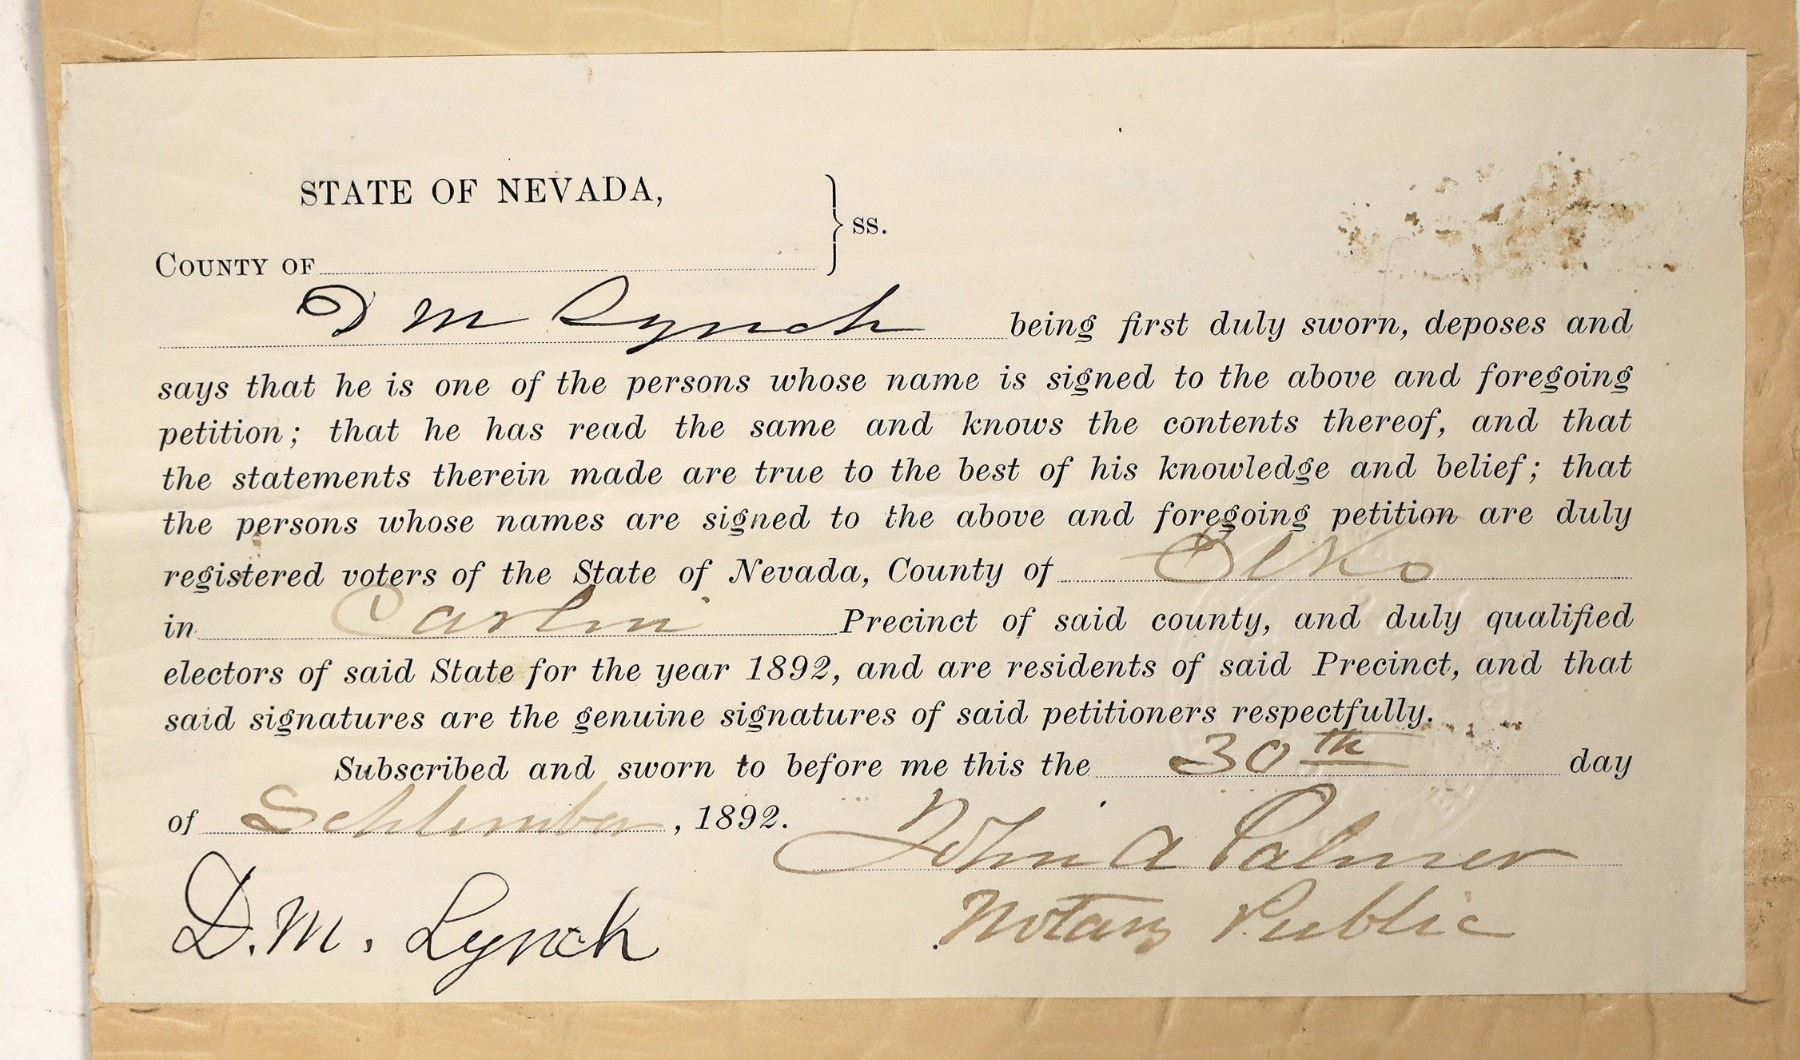 STATE OF NEVADA,
ss.
COUNTY OF
D M Lynch being first duly sworn, deposes and
says that he is one of the persons whose name is signed to the above and foregoing
petition; that he has read the same and knows the contents thereof, and that
the statements therein made are true to the best of his knowledge and belief; that
the persons whose names are signed to the above and foregoing petition are duly
registered voters of the State of Nevada, County of Elko
in Carlin Precinct of said county, and duly qualified
electors of said State for the year 1892, and are residents of said Precinct, and that
said signatures are the genuine signatures of said petitioners respectfully.
Subscribed and sworn to before me this the 30th day
of September, 1892.
John A Palmer
D. M. Lynch
Notary Public